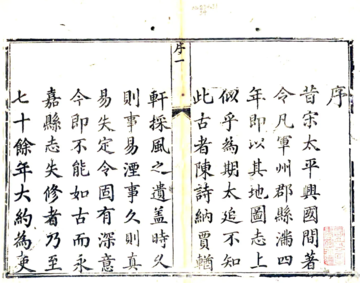 序
昔宋太平興國間著
令凡軍州郡縣滿四
年即以其地圖志上
似乎為期太迫不知
此古者陳詩納賈輶
序一
軒採風之遺蓋時久
則事易湮事久則真
易失定令固有深意
今即不能如古而永
嘉縣志失修者乃至
七十餘年大約為吏